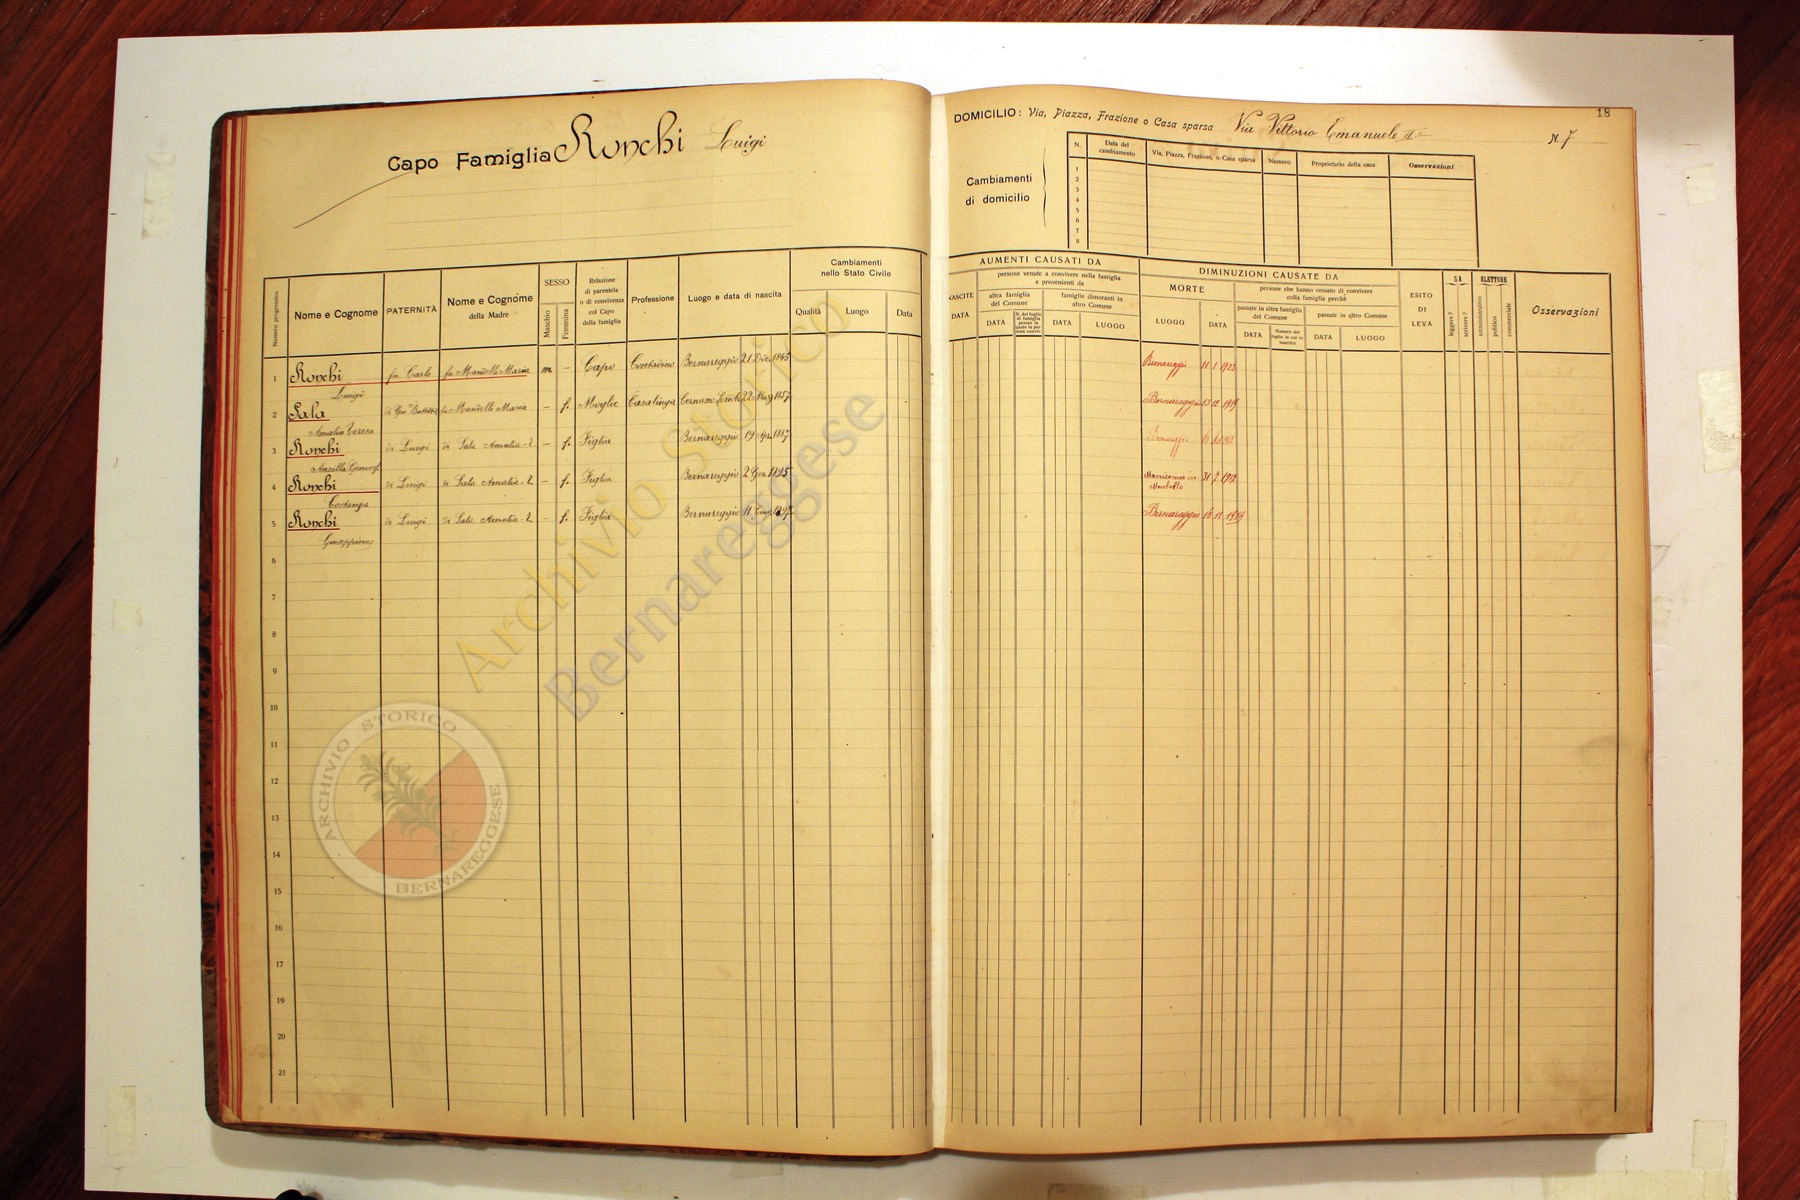 Capo Famiglia Ronchi Luigi
18
DOMICILIO: Via, Piazza, Frazione o Casa sparsa Via Vittorio Emanuele II N. 7
Cambiamenti di domicilio
N. Data del cambiamento Via, Piazza, Frazione, o Casa sparsa Numero Proprietario della casa Osservazioni
1
2
3
4
5
6
7
8
Numero progressivo
Nome e Cognome
PATERNITÀ
Nome e Cognome della Madre
SESSO
Maschio
Femmina
Relazione di parentela o di convivenza col Capo della famiglia
Professione
Luogo e data di nascita
Cambiamenti nello Stato Civile
Qualità Luogo Data
AUMENTI CAUSATI DA
NASCITE
DATA
persone venute a convivere nella famiglia e provenienti da
altra famiglia del Comune
DATA
famiglie dimoranti in altro Comune
DATA LUOGO
DIMINUZIONI CAUSATE DA
MORTE
LUOGO DATA
persone che hanno cessato di convivere colla famiglia perchè
passate in altra famiglia del Comune
DATA
passate in altro Comune
DATA LUOGO
ESITO DI LEVA
SA
leggere?
scrivere?
ELETTORE
amministrativo
politico
commerciale
Osservazioni
1 Ronchi Luigi fu Carlo fu Mandelli Maria m - Capo Contadino Bernareggio 21 Dic. 1845 Bernareggio 11 1 1923
2 Sala Amalia Teresa di Mandelli Maria - f. Moglie Casalinga 22 1857 Bernareggio 1919
3 Ronchi Ancilla di Luigi di Sala Amalia T. - f. Figlia Bernareggio 19 Apr. 1887 Bernareggio
4 Ronchi Costanza di Luigi di Sala Amalia T. - f. Figlia Bernareggio 2 Gen. 1895 Manicomio in Mombello 31 7 1912
5 Ronchi Giuseppina di Luigi di Sala Amalia T. - f. Figlia Bernareggio 11 Bernareggio 16 11 1919
6
7
8
9
10
11
12
13
14
15
16
17
19
20
21
Archivio Storico
Bernareggese
ARCHIVIO STORICO
BERNAREGGESE